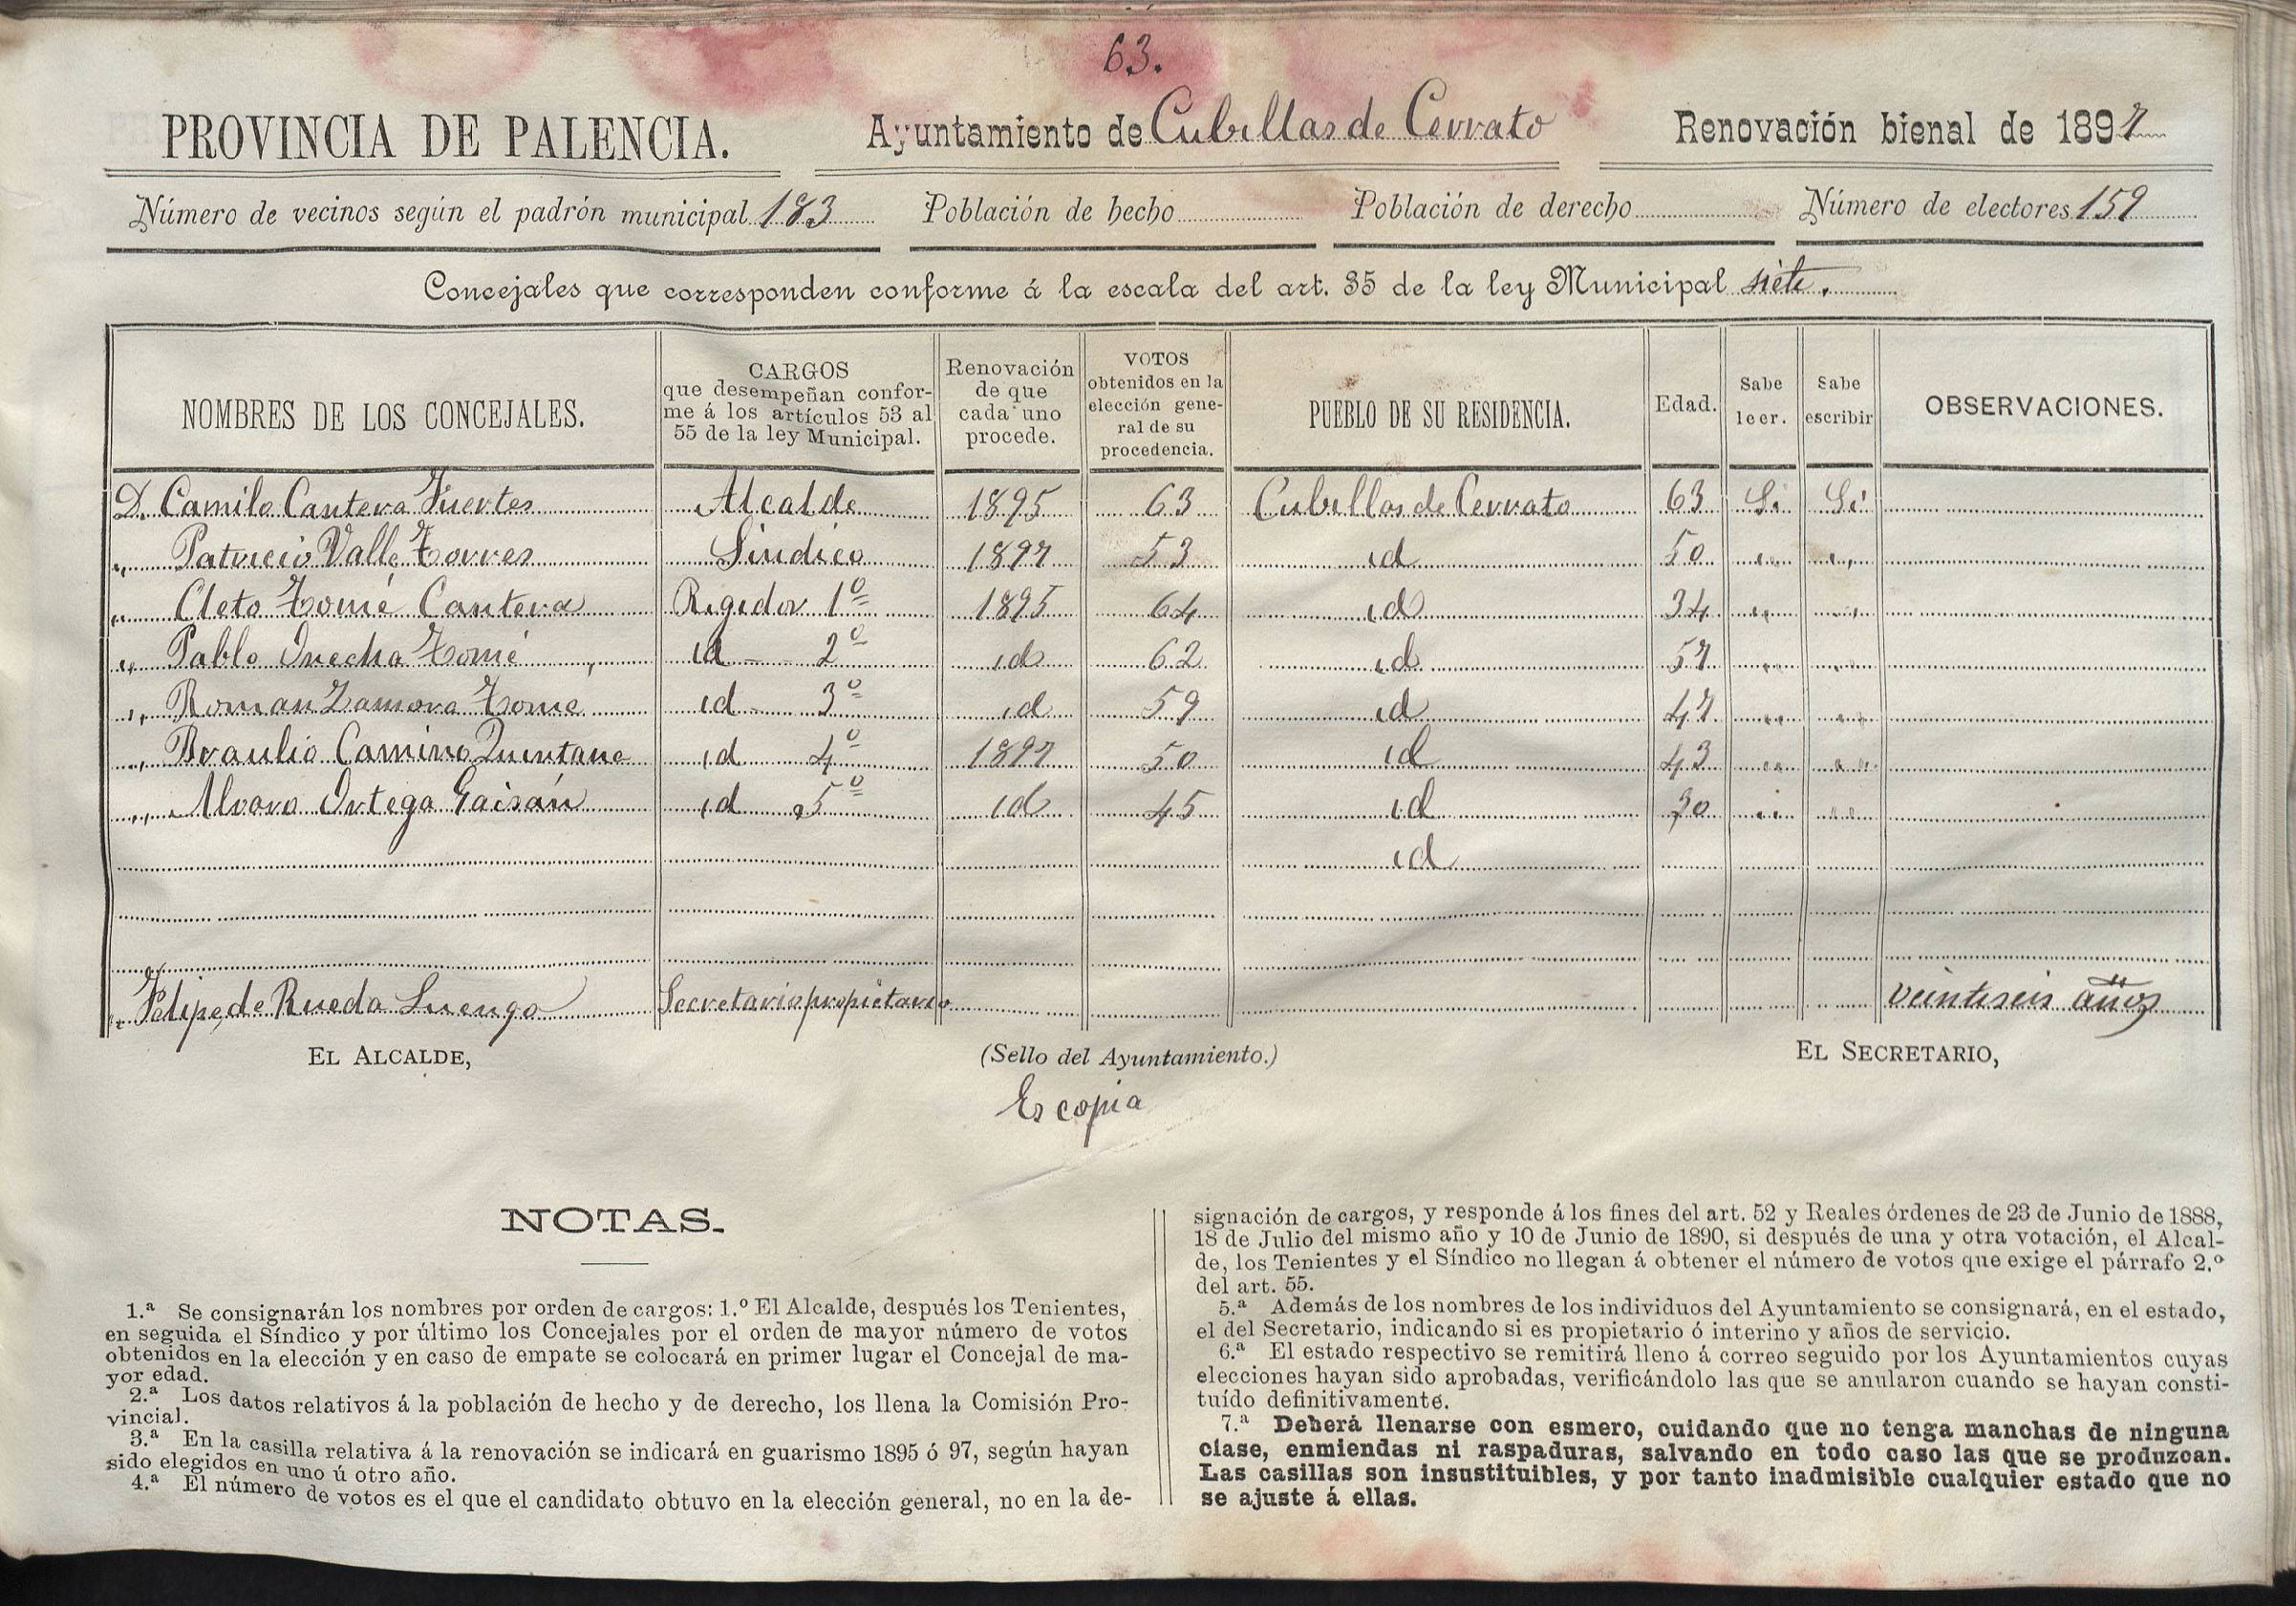 63.
PROVINCIA DE PALENCIA. Ayuntamiento de Cubillas de Cerrato Renovación bienal de 1897
Número de vecinos según el padrón municipal 183 Población de hecho Población de derecho Número de electores 159
Concejales que corresponden conforme á la escala del art. 35 de la ley Municipal siete.
NOMBRES DE LOS CONCEJALES. CARGOS que desempeñan conforme á los artículos 53 al 55 de la ley Municipal. Renovación de que cada uno procede. VOTOS obtenidos en la elección general de su procedencia. PUEBLO DE SU RESIDENCIA. Edad. Sabe leer. Sabe escribir OBSERVACIONES.
D. Camilo Cantera Fuertes Alcalde 1895 63 Cubillas de Cerrato 63 Si Si
„ Patricio Valle Torres Sindico 1897 53 id 50 „ „
„ Cleto Tomé Cantera Regidor 1º 1895 64 id 34 „ „
„ Pablo Tomé id 2º id 62 id 57 „ „
„ Roman Zamora Tomé id 3º id 59 id 47 „ „
„ Braulio Camino Quintana id 4º 1897 50 id 43 „ „
„ Alvaro Ortega Gaisán id 5º id 45 id 30 „ „
id
„ Felipe de Rueda Luengo Secretario propietario veintiseis años
EL ALCALDE, (Sello del Ayuntamiento.) EL SECRETARIO,
Es copia
NOTAS.
1.ª Se consignarán los nombres por orden de cargos: 1.º El Alcalde, después los Tenientes,
en seguida el Síndico y por último los Concejales por el orden de mayor número de votos
obtenidos en la elección y en caso de empate se colocará en primer lugar el Concejal de ma-
yor edad.
2.ª Los datos relativos á la población de hecho y de derecho, los llena la Comisión Pro-
vincial.
3.ª En la casilla relativa á la renovación se indicará en guarismo 1895 ó 97, según hayan
sido elegidos en uno ú otro año.
4.ª El número de votos es el que el candidato obtuvo en la elección general, no en la de-
signación de cargos, y responde á los fines del art. 52 y Reales órdenes de 23 de Junio de 1888,
18 de Julio del mismo año y 10 de Junio de 1890, si después de una y otra votación, el Alcal-
de, los Tenientes y el Síndico no llegan á obtener el número de votos que exige el párrafo 2.º
del art. 55.
5.ª Además de los nombres de los individuos del Ayuntamiento se consignará, en el estado,
el del Secretario, indicando si es propietario ó interino y años de servicio.
6.ª El estado respectivo se remitirá lleno á correo seguido por los Ayuntamientos cuyas
elecciones hayan sido aprobadas, verificándolo las que se anularon cuando se hayan consti-
tuído definitivamente.
7.ª Deberá llenarse con esmero, cuidando que no tenga manchas de ninguna
clase, enmiendas ni raspaduras, salvando en todo caso las que se produzcan.
Las casillas son insustituibles, y por tanto inadmisible cualquier estado que no
se ajuste á ellas.